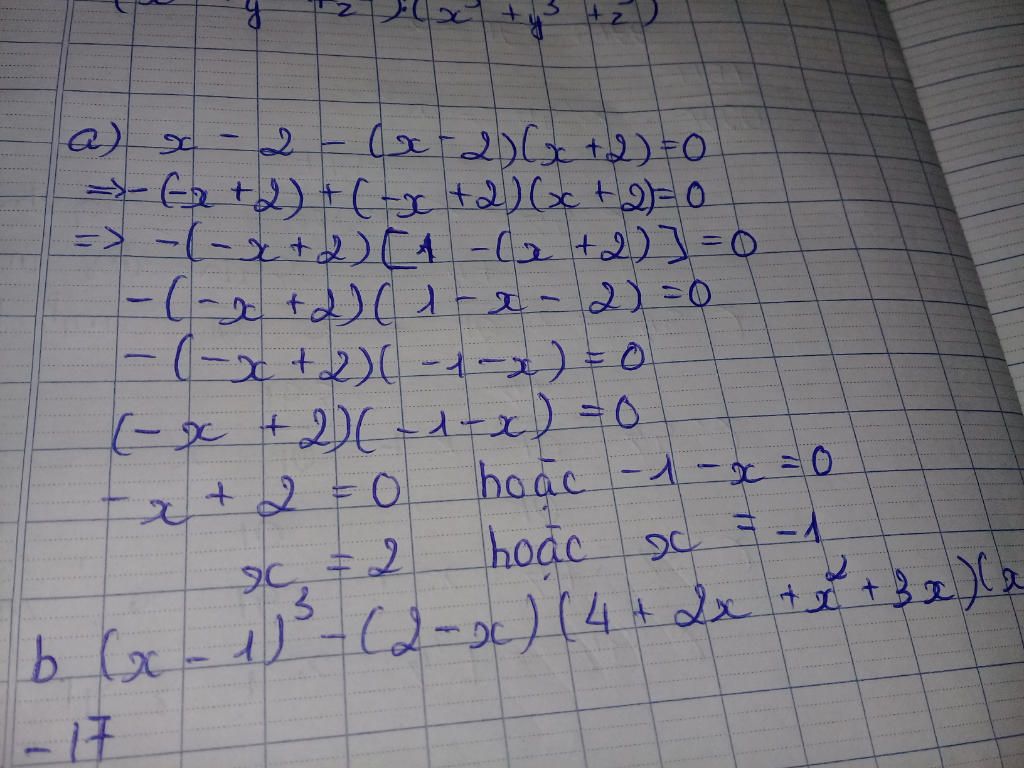 a) x - 2 - (x - 2)(x + 2) = 0
=> - (-x + 2) + (-x + 2)(x + 2) = 0
=> - (-x + 2) [1 - (x + 2)] = 0
- (-x + 2)(1 - x - 2) = 0
- (-x + 2)(-1 - x) = 0
(-x + 2)(-1 - x) = 0
-x + 2 = 0 hoặc -1 - x = 0
x = 2 hoặc x = -1
b (x - 1)³ - (2 - x)(4 + 2x + x² + 3x)(x
-17